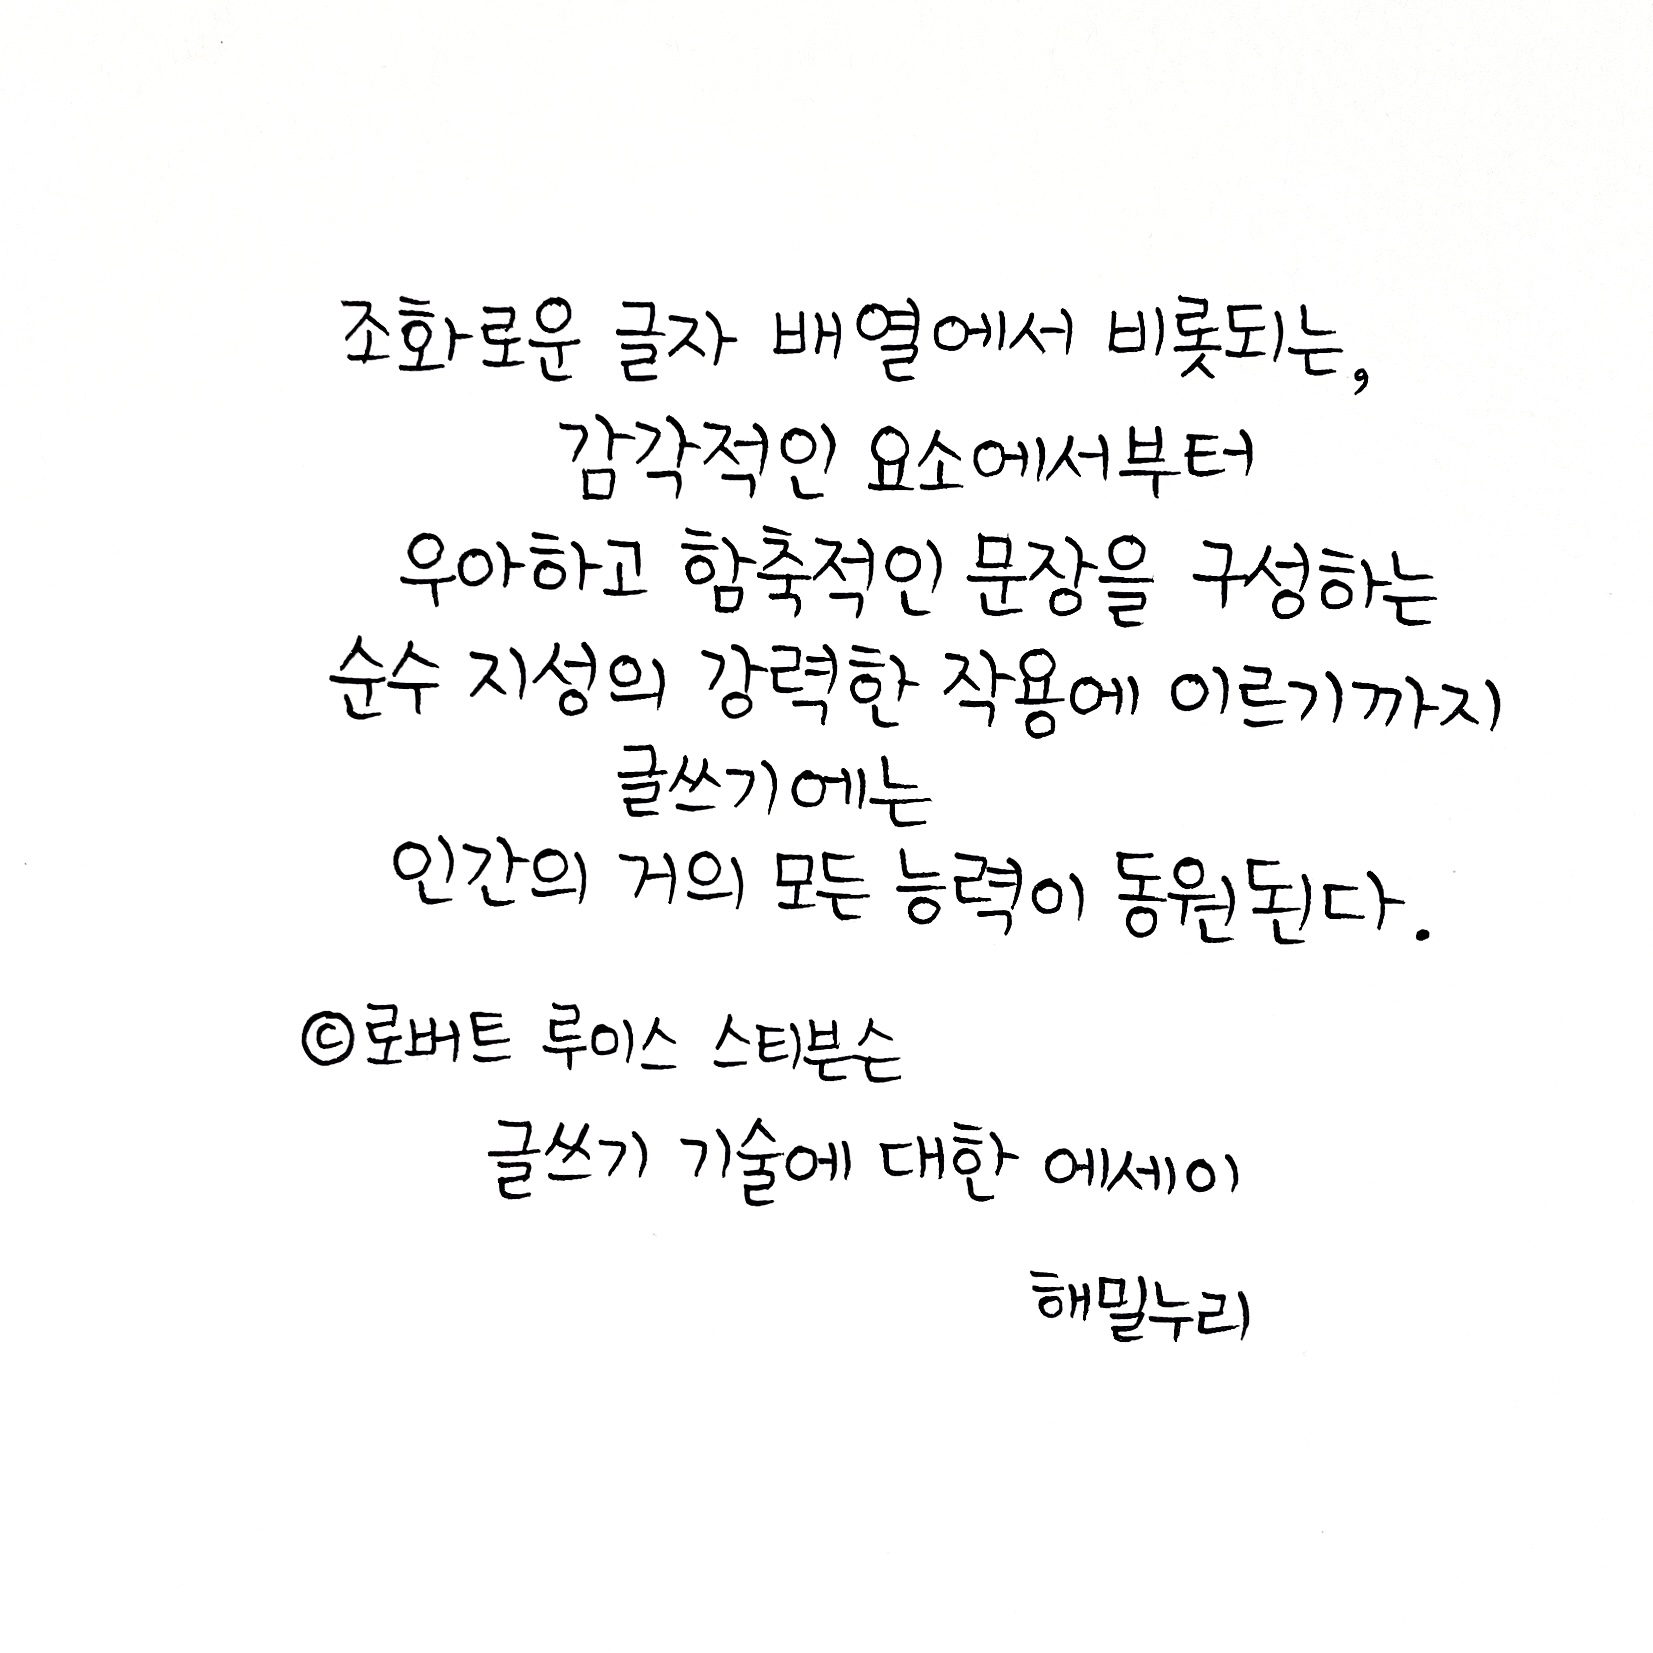 조화로운 글자 배열에서 비롯되는,
감각적인 요소에서부터
우아하고 함축적인 문장을 구성하는
순수 지성의 강력한 작용에 이르기까지
글쓰기에는
인간의 거의 모든 능력이 동원된다.
©로버트 루이스 스티븐슨
글쓰기 기술에 대한 에세이
해밀누리